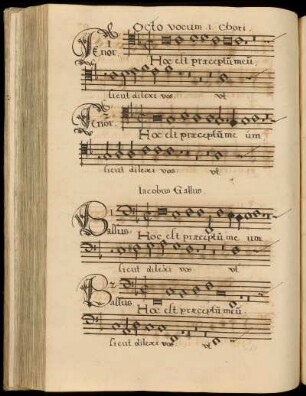 Octo vocum 1 Chori.
1
Tenor.
Hoc est præceptū meū.
sicut dilexi vos. vt
Tenor.
Hoc est præceptū me um
sicut dilexi vos vt
Iacobus Gallus.
1
Bassus.
Hoc est præceptū me um
sicut dilexi vos. vt
2
Bassus
Hoc est præceptū meū.
sicut dilexi vos vt